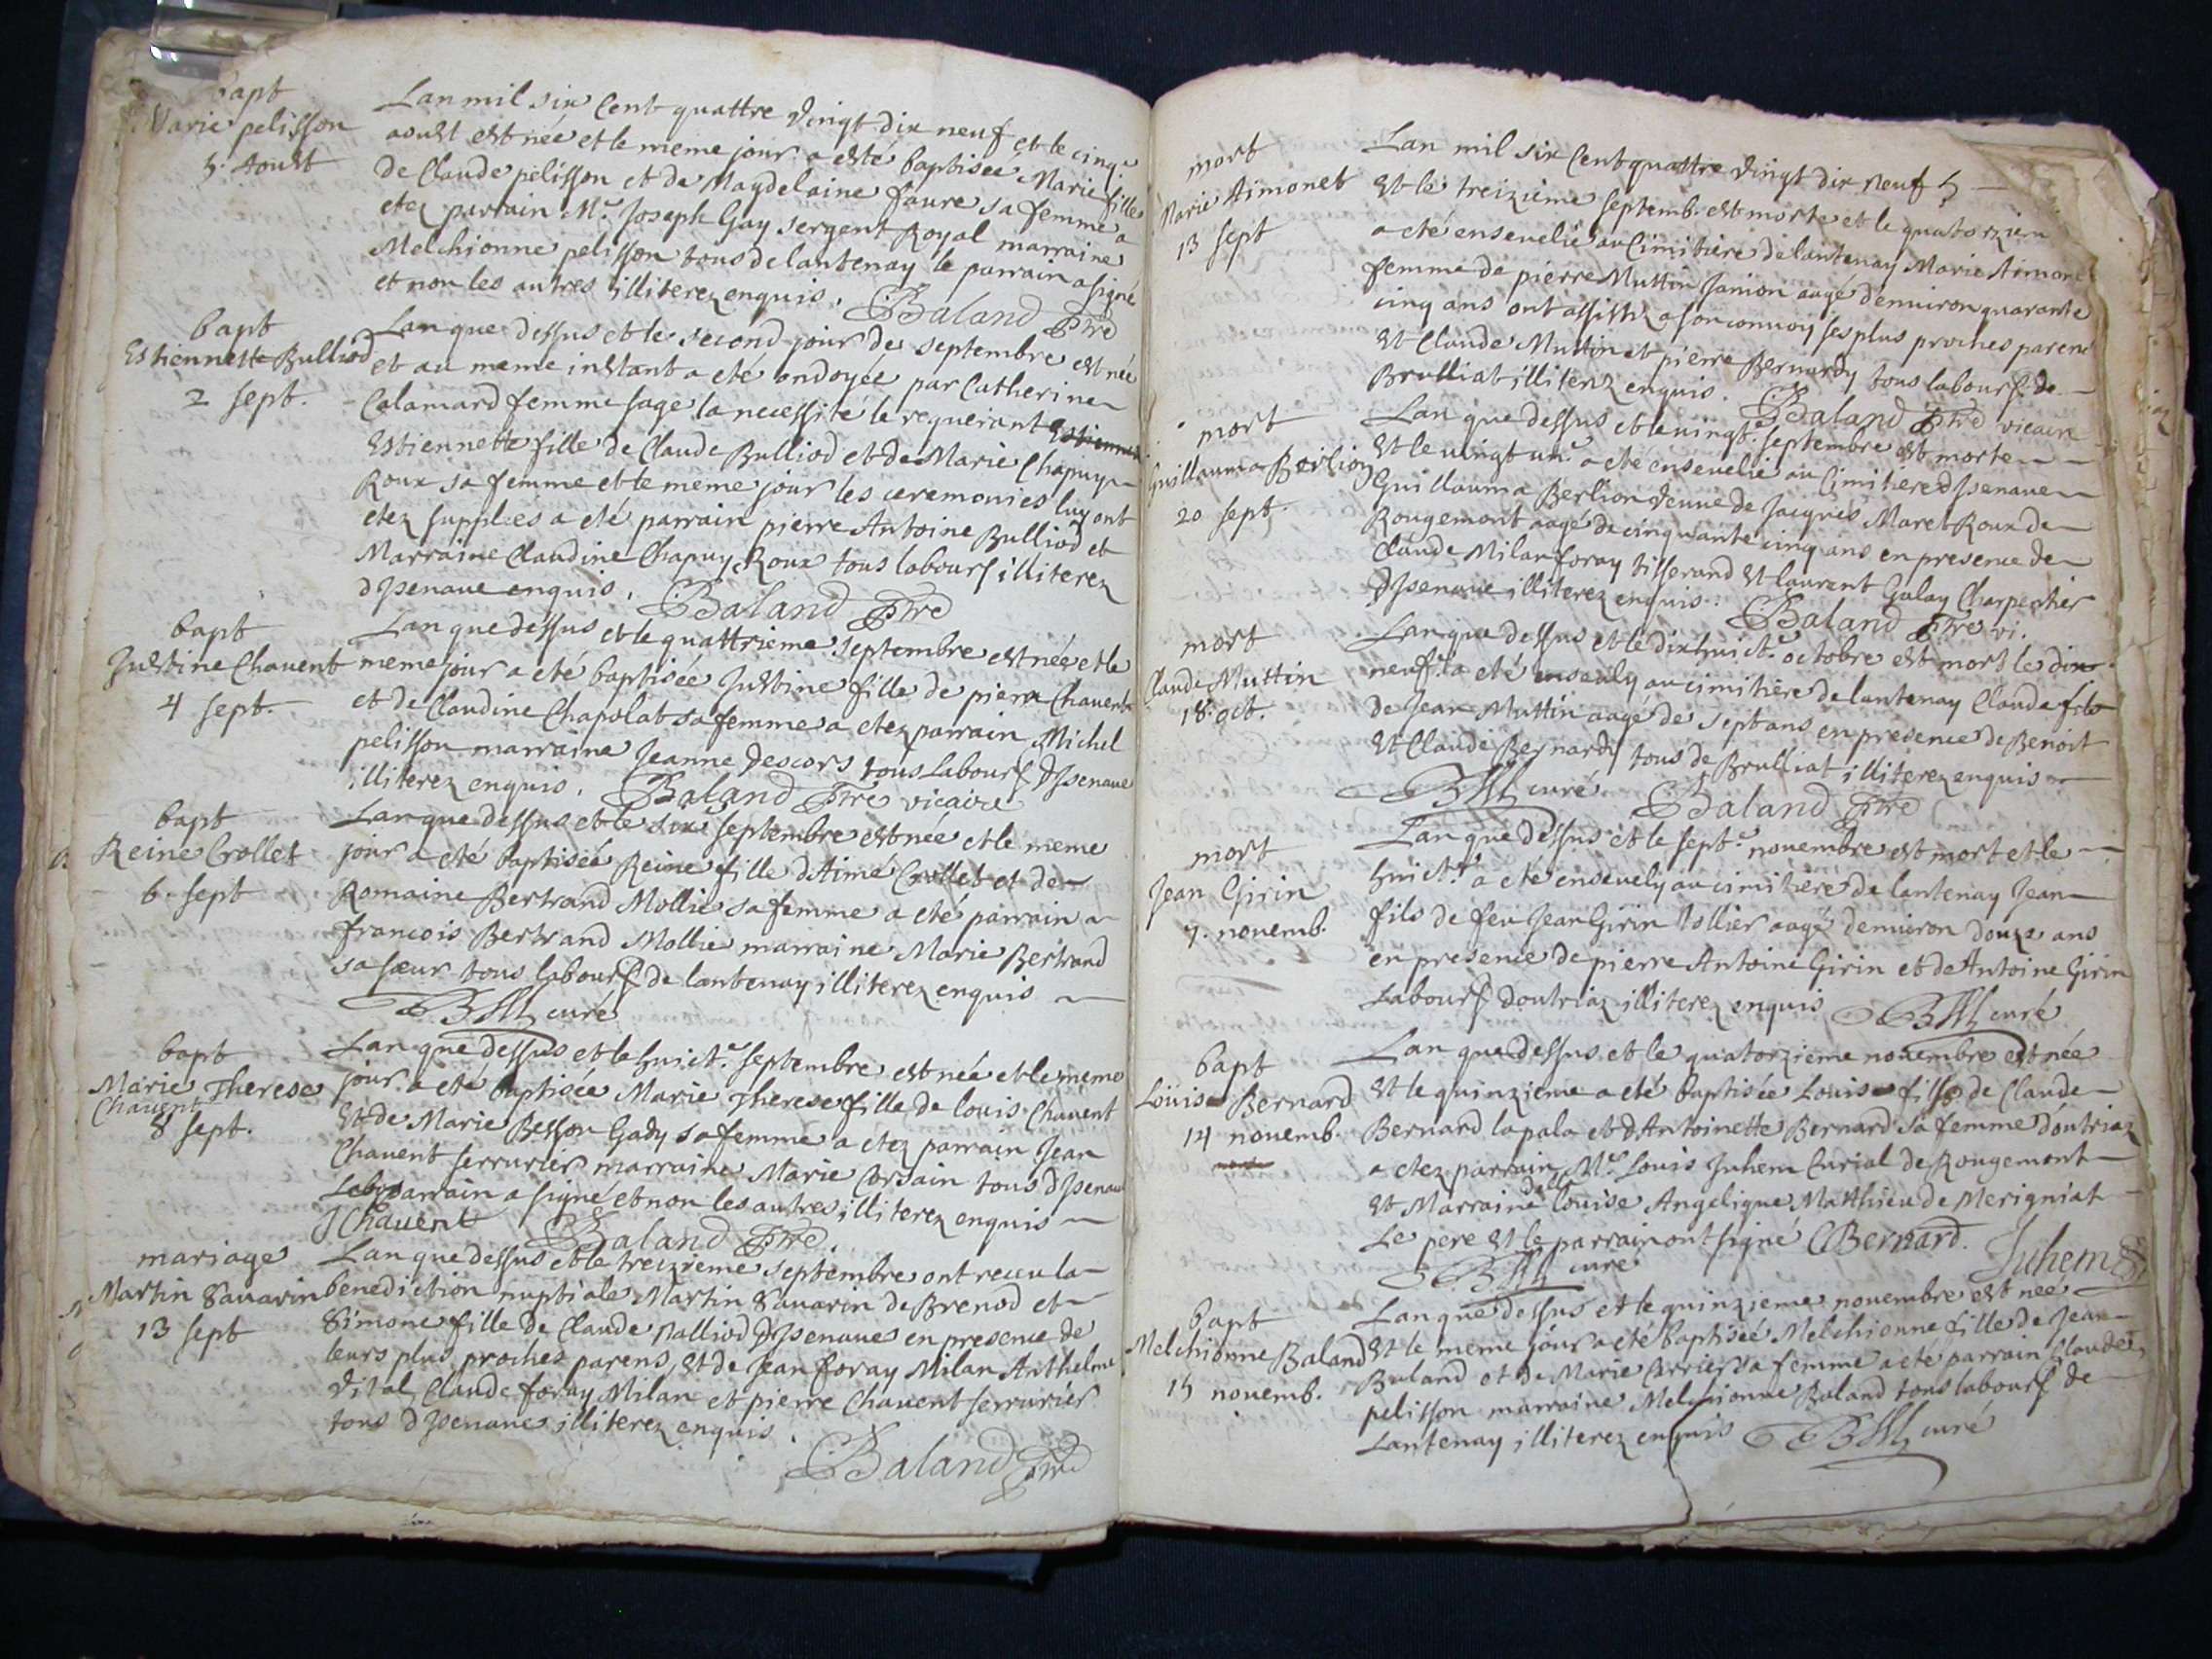 bapt
Marie pelisson
5. Aoust
Lan mil six Cent quattre Vingt dix neuf et le cinq.e
aoust est née et le meme jour a esté baptisée Marie fille
de Claude pelisson et de Magdelaine faure sa femme a
etez parrain M.e Joseph Gay sergent Royal marraine
Melchionne pelisson tous de lantenay le parrain a signé
et non les autres illiterez enquis. Baland Ptre
bapt
Estiennette Bulliod
2 sept.
Lan que dessus et le second jour de septembre est née
et au meme instant a eté ondoyée par Catherine
Calamard femme sage la necessité le requerant
Estiennette fille de Claude Bulliod et de Marie Chapuy
Roux sa femme et le meme jour les ceremonies luy ont
etez supplées a eté parrain pierre Antoine Bulliod et
Marraine Claudine Chapuy Roux tous labours illiterez
dIsenaue enquis. Baland Ptre
bapt
Justine Chauent
4 sept.
Lan que dessus et le quattrieme septembre est née et le
meme jour a eté baptisée Justine fille de pierre Chauent
et de Claudine Chapolat sa femme a etez parrain Michel
pelisson marraine Jeanne Descors tous labours dIsenaue
illiterez enquis. Baland Ptre vicaire
bapt
Reine Crollet
6. sept
Lan que dessus et le six.e septembre est née et le meme
jour a eté baptisée Reine fille dAimé Crollet et de
Romaine Bertrand Mollie sa femme a eté parrain
francois Bertrand Mollie marraine Marie Bertrand
sa sœur tous labours de lantenay illiterez enquis
curé
bapt
Marie Therese
Chauent
8 sept.
Lan que dessus et le huict.e septembre est née et le meme
jour a eté baptisée Marie Therese fille de louis Chauent
Et de Marie Besson Gady sa femme a etez parrain Jean
Chauent serrurier marraine Marie Corsain tous dIsenaue
parrain a signé et non les autres illiterez enquis
J Chauent Baland Ptre.
mariage
Martin Sauarin
13 sept
Lan que dessus et le treizieme septembre ont receu la
benediction nuptiale Martin Sauarin de Brenod et
Simone fille de Claude Balliod dIsenaue en presence de
leurs plus proches parens, Et de Jean foray Milan Anthelme
Vital Claude foray Milan et pierre Chauent serrurier
tous dIsenaue illiterez enquis.
Baland Ptre
mort
Marie Aimonet
13 sept
Lan mil six Cent quattre Vingt dix neuf
Et le treizieme septemb. est morte et le quatorzieme
a eté enseuelie au Cimitiere de lantenay Marie Aimonet
femme de pierre Muttin Janion aagé denuiron quarante
cinq ans ont assistz a son conuoy ses plus proches parens
Et Claude Muttin et pierre Bernardy tous labours de
Brulliat illiterez enquis. Baland Ptre vicaire
mort
Guillauma Berlion
20 sept.
Lan que dessus et le uingt.e septembre est morte
Et le uingt un.e a eté enseuelie au Cimitiere dIsenaue
Guillauma Berlion Veuue de Jacques Maret Roux de
Rougemont aagé de cinquante cinq ans en presence de
Claude Milan foray tisserand Et laurent Galay Charpentier
dIsenaue illiterez enquis. Baland Ptre vi.
mort
Claude Muttin
18. oct.
Lan que dessus et le dix huict.e octobre est mort le dix
neuf.e a eté enseuely au cimitiere de lantenay Claude fils
de Jean Muttin aagé de sept ans en presence de Benoit
Et Claude Bernardy tous de Brulliat illiterez enquis
curé Baland Ptre
mort
Jean Girin
7. nouemb.
Lan que dessus et le sept.e nouembre est mort et le
huict.e a eté enseuely au cimitiere de lantenay Jean
fils de feu Jean Girin tollier aagé denuiron douze ans
en presence de pierre Antoine Girin et de Antoine Girin
Labours doutriaz illiterez enquis curé
bapt
Louise Bernard
14 nouemb.
Lan que dessus et le quatorzieme nouembre est née
Et le quinzieme a eté baptisée Louise fille de Claude
Bernard lapala et dAntoinette Bernard sa femme doutriaz
a etez parrain M.e Louis Juhem Curial de Rougemont
Et Marraine dlle louise Angelique Matthieu de Merigniat
Le pere et le parrain ont signé CBernard. Juhem
curé
bapt
Melchionne Baland
15 nouemb.
Lan que dessus et le quinzieme nouembre est née
Et le meme jour a eté baptisée Melchionne fille de Jean
Baland et de Marie Carrier sa femme a eté parrain Claude
pelisson marraine Melchionne Baland tous labours de
Lantenay illiterez enquis curé